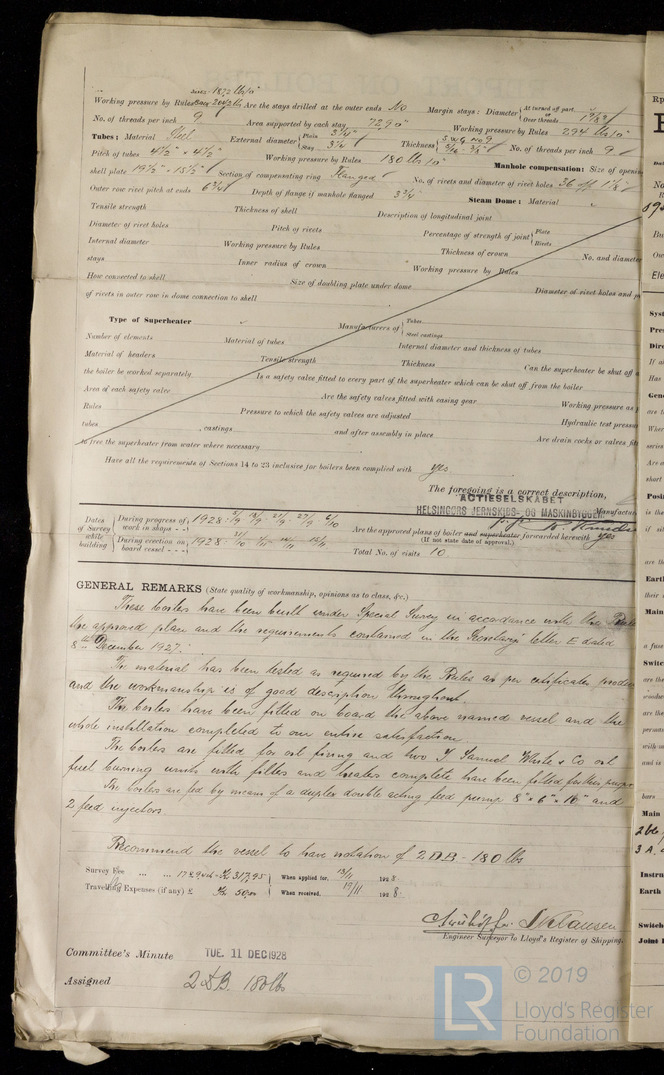 Sides 187.2 lbs/□"
Working pressure by Rules Back 204.2 lb Are the stays drilled at the outer ends No Margin stays: Diameter { At turned off part
Over threads
No. of threads per inch 9 Area supported by each stay 72.9□" Working pressure by Rules 294 lbs/□"
Tubes: Material Steel External diameter { Plain 3¼"
Stay 3¼" Thickness { S.W.G. No 9
No. of threads per inch 9
Pitch of tubes 4½" × 4½" Working pressure by Rules 180 lb/□" Manhole compensation: Size of opening
shell plate 19½" × 15½" Section of compensating ring Flanged No. of rivets and diameter of rivet holes 36 of 1⅛"
Outer row rivet pitch at ends Depth of flange if manhole flanged 3¾" Steam Dome: Material
Tensile strength Thickness of shell Description of longitudinal joint
Diameter of rivet holes Pitch of rivets Percentage of strength of joint { Plate
Rivets
Internal diameter Working pressure by Rules Thickness of crown No. and diameter
stays Inner radius of crown Working pressure by Rules
How connected to shell Size of doubling plate under dome Diameter of rivet holes and p
of rivets in outer row in dome connection to shell
Type of Superheater Manufacturers of { Tubes
Steel castings
Number of elements Material of tubes Internal diameter and thickness of tubes
Material of headers Tensile strength Thickness Can the superheater be shut off
the boiler be worked separately Is a safety valve fitted to every part of the superheater which can be shut off from the boiler
Area of each safety valve Are the safety valves fitted with easing gear Working pressure as
Rules Pressure to which the safety valves are adjusted Hydraulic test pressu
tubes , castings and after assembly in place Are drain cocks or valves fit
to free the superheater from water where necessary
Have all the requirements of Sections 14 to 23 inclusive for boilers been complied with yes
The foregoing is a correct description,
ACTIESELSKABET
HELSINGØRS JERNSKIBS- OG MASKINBYGGERI Manufactu
Dates of Survey while building
During progress of work in shops - - 1928
During erection on board vessel - - - 1928
Are the approved plans of boiler and superheater forwarded herewith yes
(If not state date of approval.)
Total No. of visits 10
GENERAL REMARKS (State quality of workmanship, opinions as to class, &c.)
These boilers have been built under Special Survey in accordance with the Rules
the approved plan and the requirements contained in the Secretary's letter E dated
8th December 1927.
The material has been tested as required by the Rules as per certificates produc
and the workmanship is of good description throughout.
The boilers have been fitted on board the above named vessel and the
whole installation completed to our entire satisfaction.
The boilers are fitted for oil firing and two J Samuel White & Co oil
fuel burning units with filter and heater complete have been fitted for this purpo
The boilers are fed by means of a duplex double acting feed pump 8" × 6" × 10" and
2 feed injectors.
Recommend the vessel to have notation of 2 D.B - 180 lbs
Survey Fee ... ... Kr 317,95 When applied for, 13/11 1928
Travelling Expenses (if any) £ Kr 50,00 When received, 19/11 1928.
Klausen
Engineer Surveyor to Lloyd's Register of Shipping.
Committee's Minute TUE. 11 DEC 1928
Assigned 2 D.B. 180 lbs
LR
© 2019
Lloyd's Register
Foundation